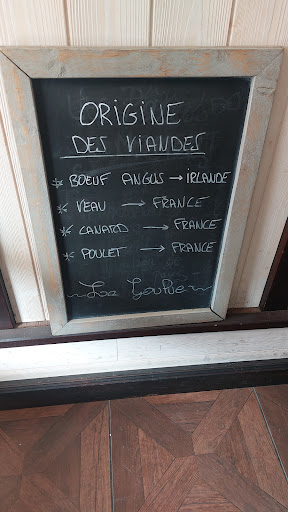 ORIGINE
DES VIANDES
* BOEUF ANGUS → IRLANDE
* VEAU → FRANCE
* CANARD → FRANCE
* POULET → FRANCE